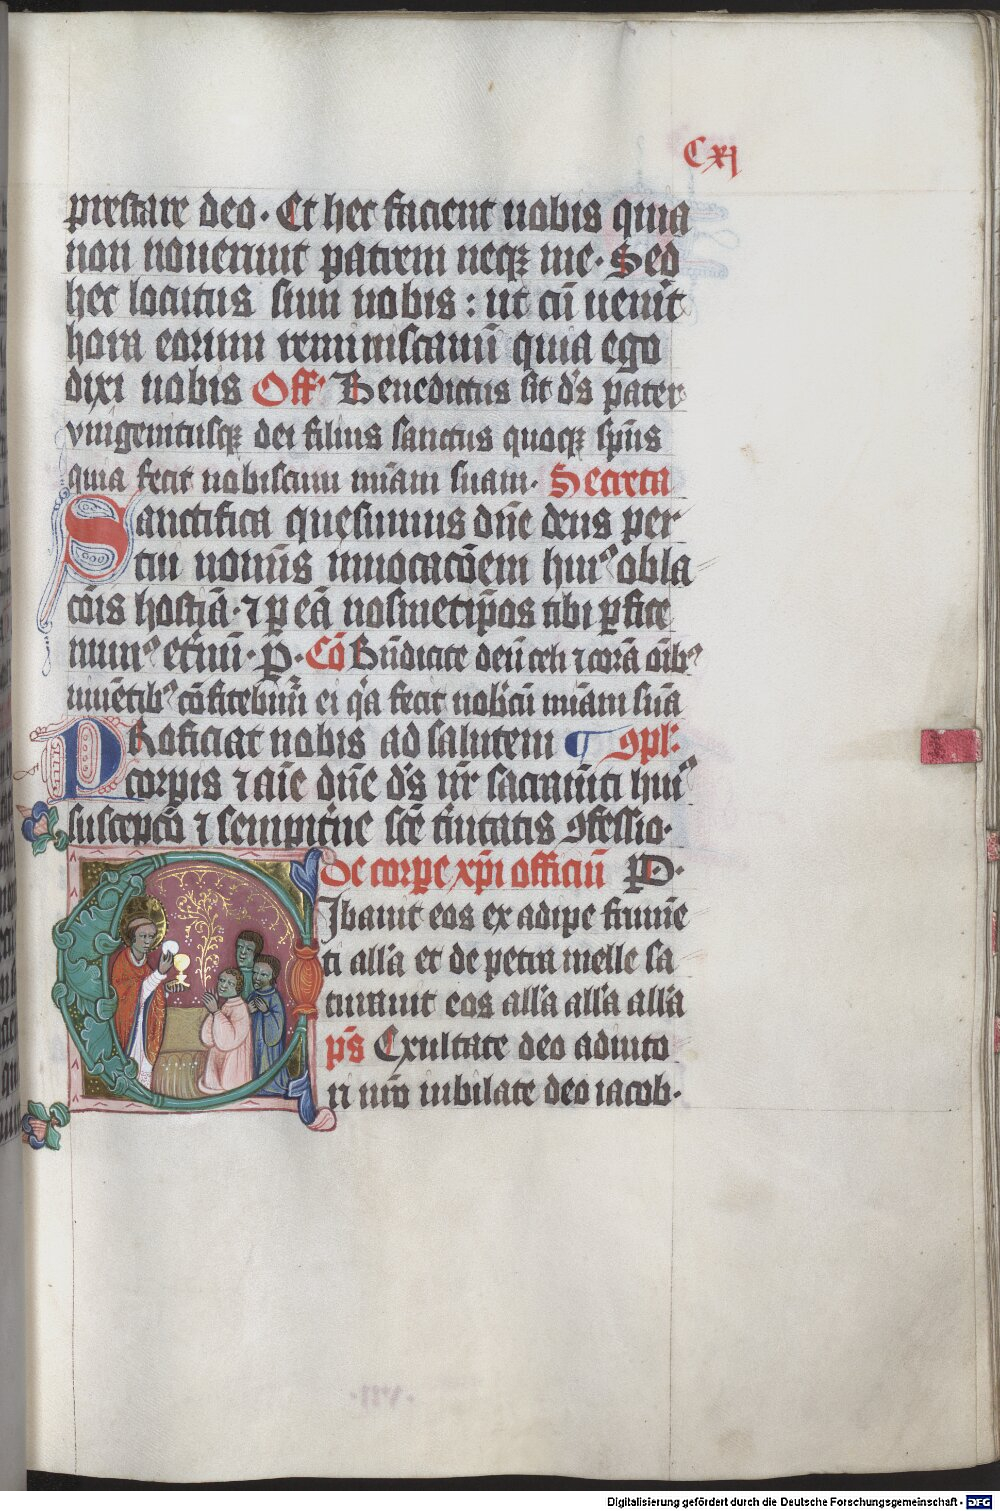 Cxj
prestare deo. Et hec facient uobis quia
non nouerunt patrem neqꝫ me. Sed
hec locutus sum uobis : ut cū uen̄it
hora eorum reminiscamī quia ego
dixi uobis Off' Benedictus sit d̄s pater
vnigenitusqꝫ dei filius sanctus quoqꝫ sp̄us
quia fecit nobiscum mīam suam. Secreta
Sanctifica quesumus dn̄e deus per
tui nominis inuocacōem huiꝰ obla
cōis hostiā. ⁊ p eā nosmetip̄os tibi ꝑfice
munꝰ et̄nū. P. Cō Bn̄dicite deū celi ⁊ corā oīibꝫ
uiuētibꝰ cōfitebimī ei q̄a fecit nobcū mīam suā
PRoficiat nobis ad salutem ¶ ꝯpl'
corpis ⁊ aīe dn̄e d̄s nr̄ sacramēti huiꝰ
susceptō ⁊ sempit̄ne scē t̄nitatis ꝯfessio.
De corpe xp̄i officiū P.
Cibauit eos ex adipe frume
ti all'a et de petra melle sa
turauit eos all'a all'a all'a
p̄s Exultate deo adiuto
ri nr̄o iubilate deo iacob.
Digitalisierung gefördert durch die Deutsche Forschungsgemeinschaft - DFG